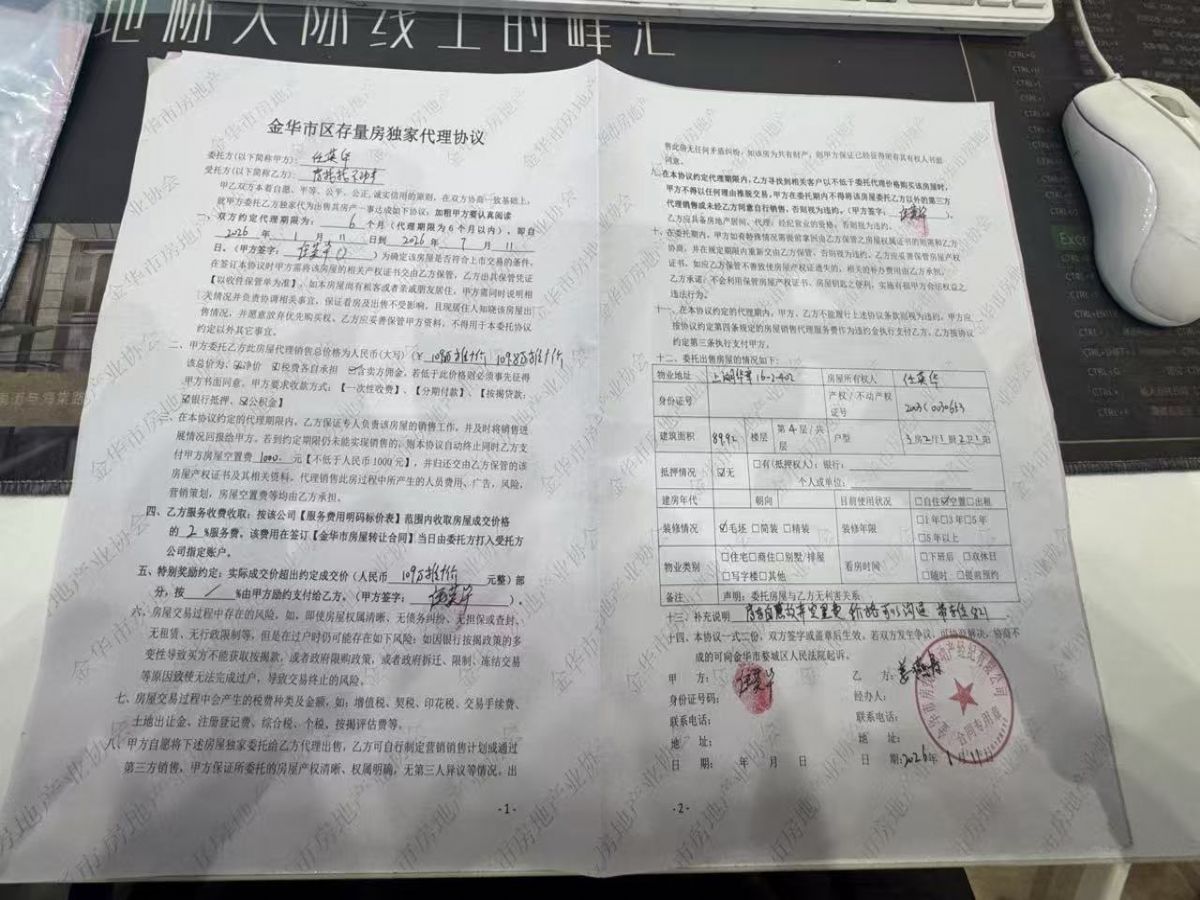 地标天际线上的峰汇
金华市区存量房独家代理协议
委托方(以下简称甲方):任英华
受托方(以下简称乙方):
甲乙双方本着自愿、平等、公平、公正、诚实信用的原则,在双方协商一致基础上,
就甲方委托乙方独家代为出售其房产一事达成如下协议:如租甲方要认真阅读
一、双方约定代理期限为: 6 个月(代理期限为6个月以内),即自
2026 年 1 月 11 日到 2026 年 7 月 11
日。(甲方签字: 任英华 )为确定该房屋是否符合上市交易的条件,
在签订本协议时甲方需将该房屋的相关产权证书交由乙方保管,乙方出具保管凭证
【以收件保管单为准】,如本房屋尚有租客或者亲戚朋友居住,甲方需同时说明相
关情况并负责协调相关事宜,保证看房及出售不受影响,且现居住人知晓该房屋出
售情况,并愿意放弃优先购买权。乙方应妥善保管甲方资料,不得用于本委托协议
约定以外其它事宜。
二、甲方委托乙方此房屋代理销售总价格为人民币(大写)(¥ 109万 109.8万
该总价为:☑净价 ☑税费各自承担 ☑含卖方佣金,若低于此价格则必须事先征得
甲方书面同意。甲方要求收款方式:【一次性收费】、【分期付款】、【按揭贷款:
☑银行抵押、☑公积金】
三、在本协议约定的代理期限内,乙方保证专人负责该房屋的销售工作,并及时将销售进
展情况回报给甲方。若到约定期限仍未能实现销售的,则本协议自动终止同时乙方支
付甲方房屋空置费 1000 元【不低于人民币1000元】,并归还交由乙方保管的该
房屋产权证书及其相关资料。代理销售此房过程中所产生的人员费用、广告,风险,
营销策划,房屋空置费等均由乙方承担。
四、乙方服务收费收取:按该公司【服务费用明码标价表】范围内收取房屋成交价格
的 2 %服务费。该费用在签订【金华市房屋转让合同】当日由委托方打入受托方
公司指定账户。
五、特别奖励约定:实际成交价超出约定成交价(人民币 109万 元整)部
分,按 / %由甲方励约支付给乙方。(甲方签字: 任英华 )。
六、房屋交易过程中存在的风险,如,即使房屋权属清晰、无债务纠纷、无担保或查封、
无租赁、无行政限制等,但是在过户时仍可能存在如下风险:如因银行按揭政策的多
变性导致买方不能获取按揭款,或者政府限购政策,或者政府拆迁、限制、冻结交易
等原因致使无法完成过户,导致交易终止的风险。
七、房屋交易过程中会产生的税费种类及金额,如:增值税、契税、印花税、交易手续费、
土地出让金、注册登记费、综合税、个税、按揭评估费等。
八、甲方自愿将下述房屋独家委托给乙方代理出售,乙方可自行制定营销销售计划或通过
第三方销售,甲方保证所委托的房屋产权清晰、权属明确,无第三人异议等情况。出
- 1 -
售此房无任何矛盾纠纷,如该房为共有财产,则甲方保证已经征得所有其有权人书面
同意。
九、在本协议约定代理期限内,乙方寻找到相关客户以不低于委托代理价格购买该房屋时,
甲方不得以任何理由推脱交易,甲方在委托期内不得将该房屋委托乙方以外的第三方
代理销售或未经乙方同意自行销售,否则视为违约。(甲方签字: 任英华 )。
乙方应具备房地产居间、代理、经纪营业的资格,否则视为违约。
十、在委托期内,甲方如有特殊情况需提前拿回由乙方保管之房屋权属证书的则需和乙方
协商,并在规定期限内重新交由乙方保管,否则视为违约。乙方应妥善保管房屋产权
证书,如应乙方保管不善致使房屋产权证遗失的,相关的补办费用由乙方承担。
乙方承诺:不会利用保管房屋产权证书、房屋钥匙之便利,实施有损甲方合法权益之
违法行为。
十一、在本协议约定的代理期内,甲方、乙方不能履行上述协议条款则视为违约。甲方应
按协议约定第四条规定的房屋销售代理服务费作为违约金执行支付乙方。乙方按协议
约定第三条执行支付甲方。
十二、委托出售房屋的情况如下:
物业地址 上湖华章16-2-402 房屋所有权人 任英华
身份证号 产权/不动产权证号
建筑面积 89.92 楼层 第 4 层/共 层 户型 3房2厅1厨2卫1阳
抵押情况 ☑无 □有(抵押权人):银行:
个人或单位:
建房年代 朝向 目前使用状况 □自住☑空置□出租
装修情况 ☑毛坯 □简装 □精装 装修年限 □1年□3年□5年
□5年以上
物业类别 □住宅□商住□别墅/排屋 □写字楼□其他 看房时间 □下班后 □双休日
□随时 □提前预约
备注 声明:委托房屋与乙方无利害关系
十三、补充说明 房东自愿放弃空置费 价格可以沟通
十四、本协议一式二份,双方签字或盖章后生效,若双方发生争议,可协商解决,协商不
成的可向金华市婺城区人民法院起诉。
甲 方: 任英华 乙 方:
身份证号码: 经办人:
联系电话: 联系电话:
地 址: 地 址:
日 期: 年 月 日 日 期:2026年 1 月 11 日
合同专用章
- 2 -